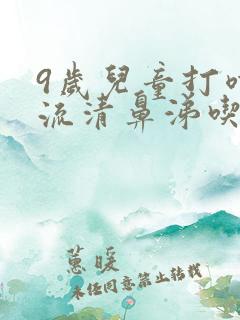 9歲兒童打
流清鼻涕喫
蕙暖
未經同意禁止轉載